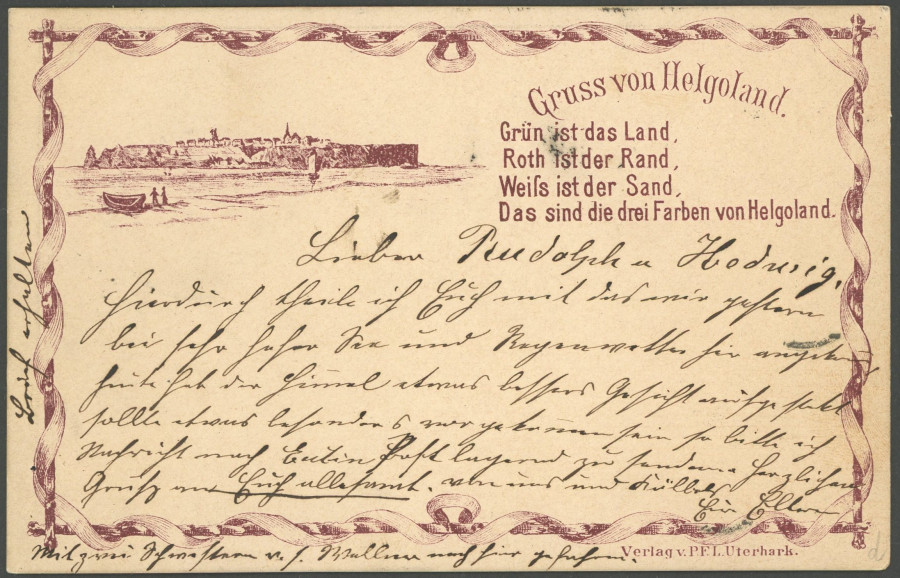 Gruss von Helgoland.
Grün ist das Land,
Roth ist der Rand,
Weiſs ist der Sand,
Das sind die drei Farben von Helgoland.
Lieber Rudolph u Hedwig,
Hierdurch theile ich Euch mit das wir gestern
bei sehr hoher See und Regenwetter hir
heute hat der Himel etwas bessers Gesicht aufgesteckt
sollte etwas besonders vorgekommen sein so bitte ich
Nachricht nach Eutin Postlagernd zu senden. Herzlichen
Gruß an Euch allesamt. von uns und
Eur Eltern
Brief erhalten
Mit zwei Schwestern v. nach hier gefahren.
Verlag v. P.F.L. Uterhark.
d